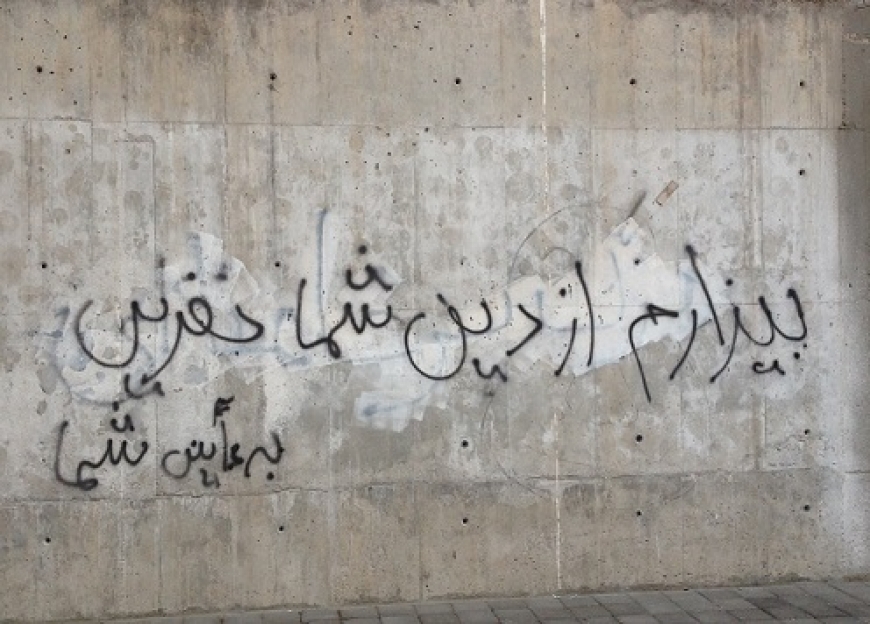 بیزارم از دین شما نفرین
به آیین شما